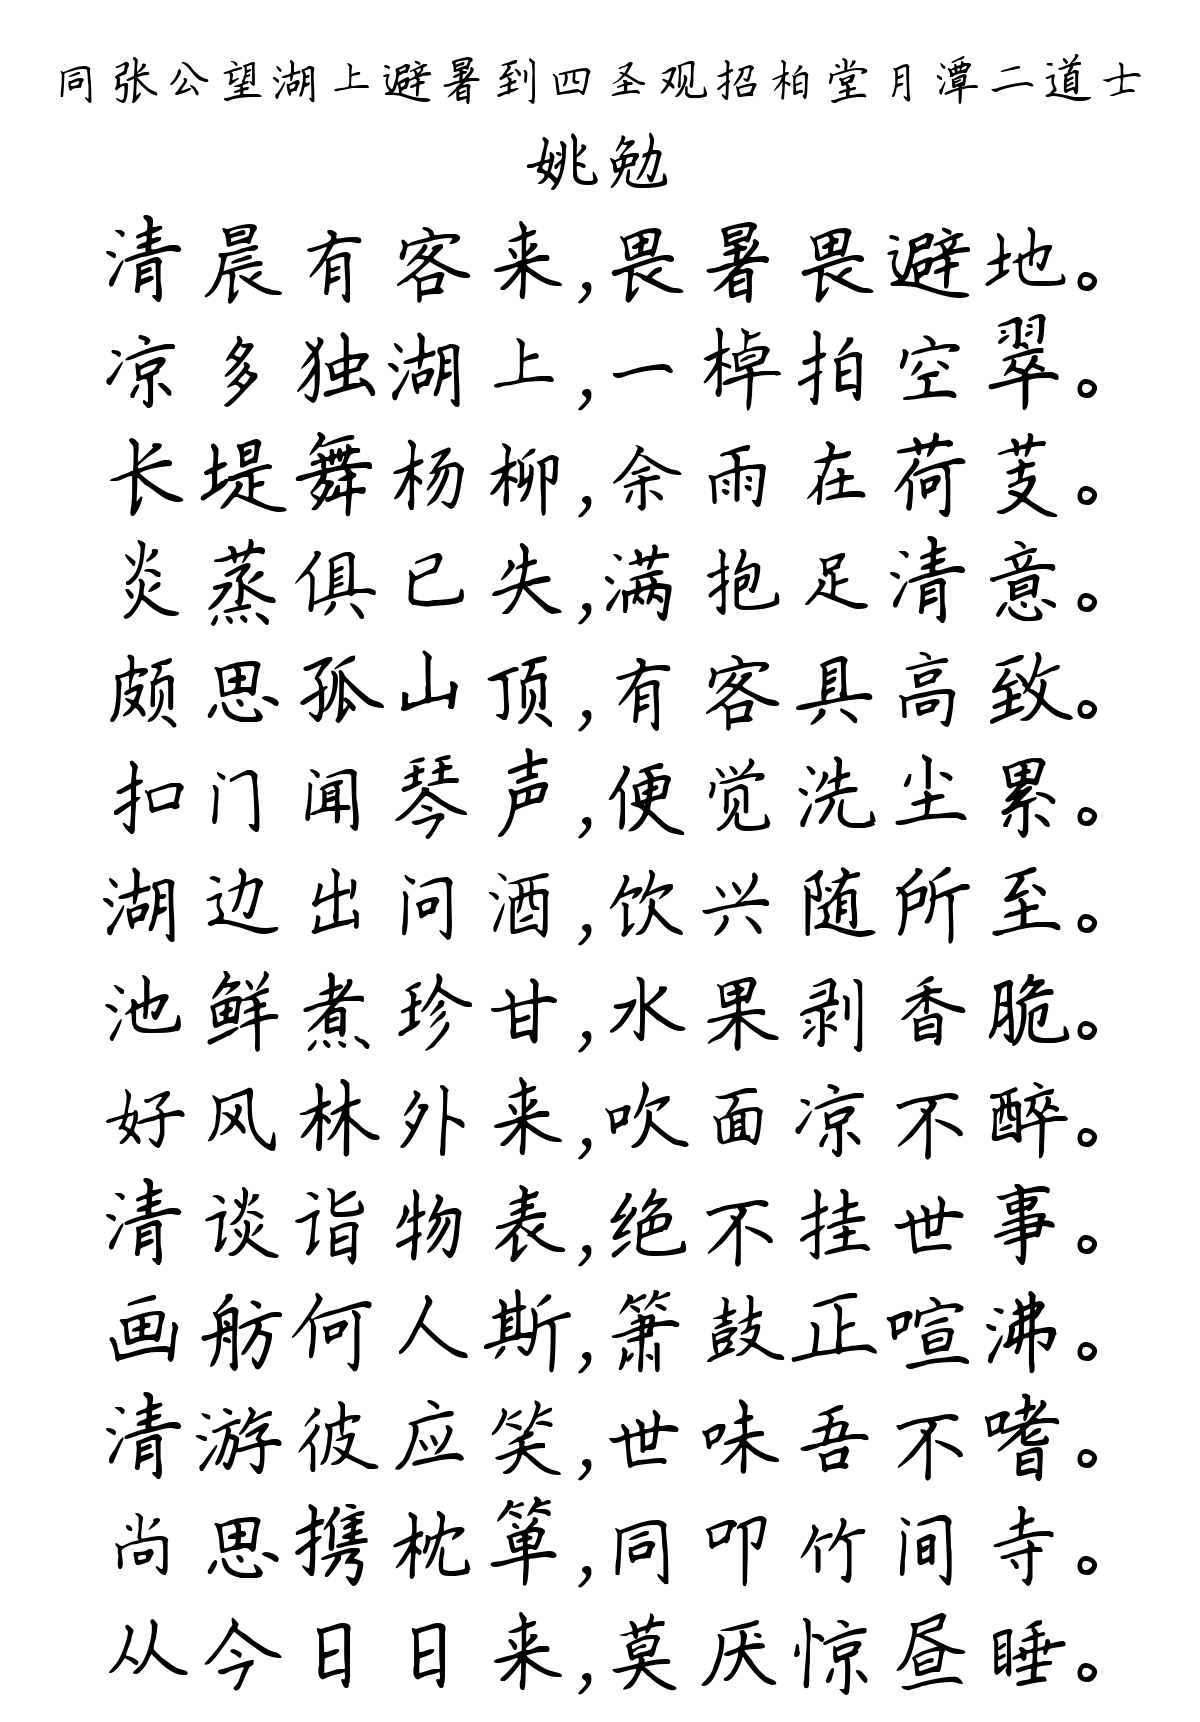 同张公望湖上避暑到四圣观招柏堂月潭二道士
姚勉
清晨有客来,畏暑畏避地。
凉多独湖上,一棹拍空翠。
长堤舞杨柳,余雨在荷芰。
炎蒸俱已失,满抱足清意。
颇思孤山顶,有客具高致。
扣门闻琴声,便觉洗尘累。
湖边出问酒,饮兴随所至。
池鲜煮珍甘,水果剥香脆。
好风林外来,吹面凉不醉。
清谈诣物表,绝不挂世事。
画舫何人斯,箫鼓正喧沸。
清游彼应笑,世味吾不嗜。
尚思携枕箪,同叩竹间寺。
从今日日来,莫厌惊昼睡。